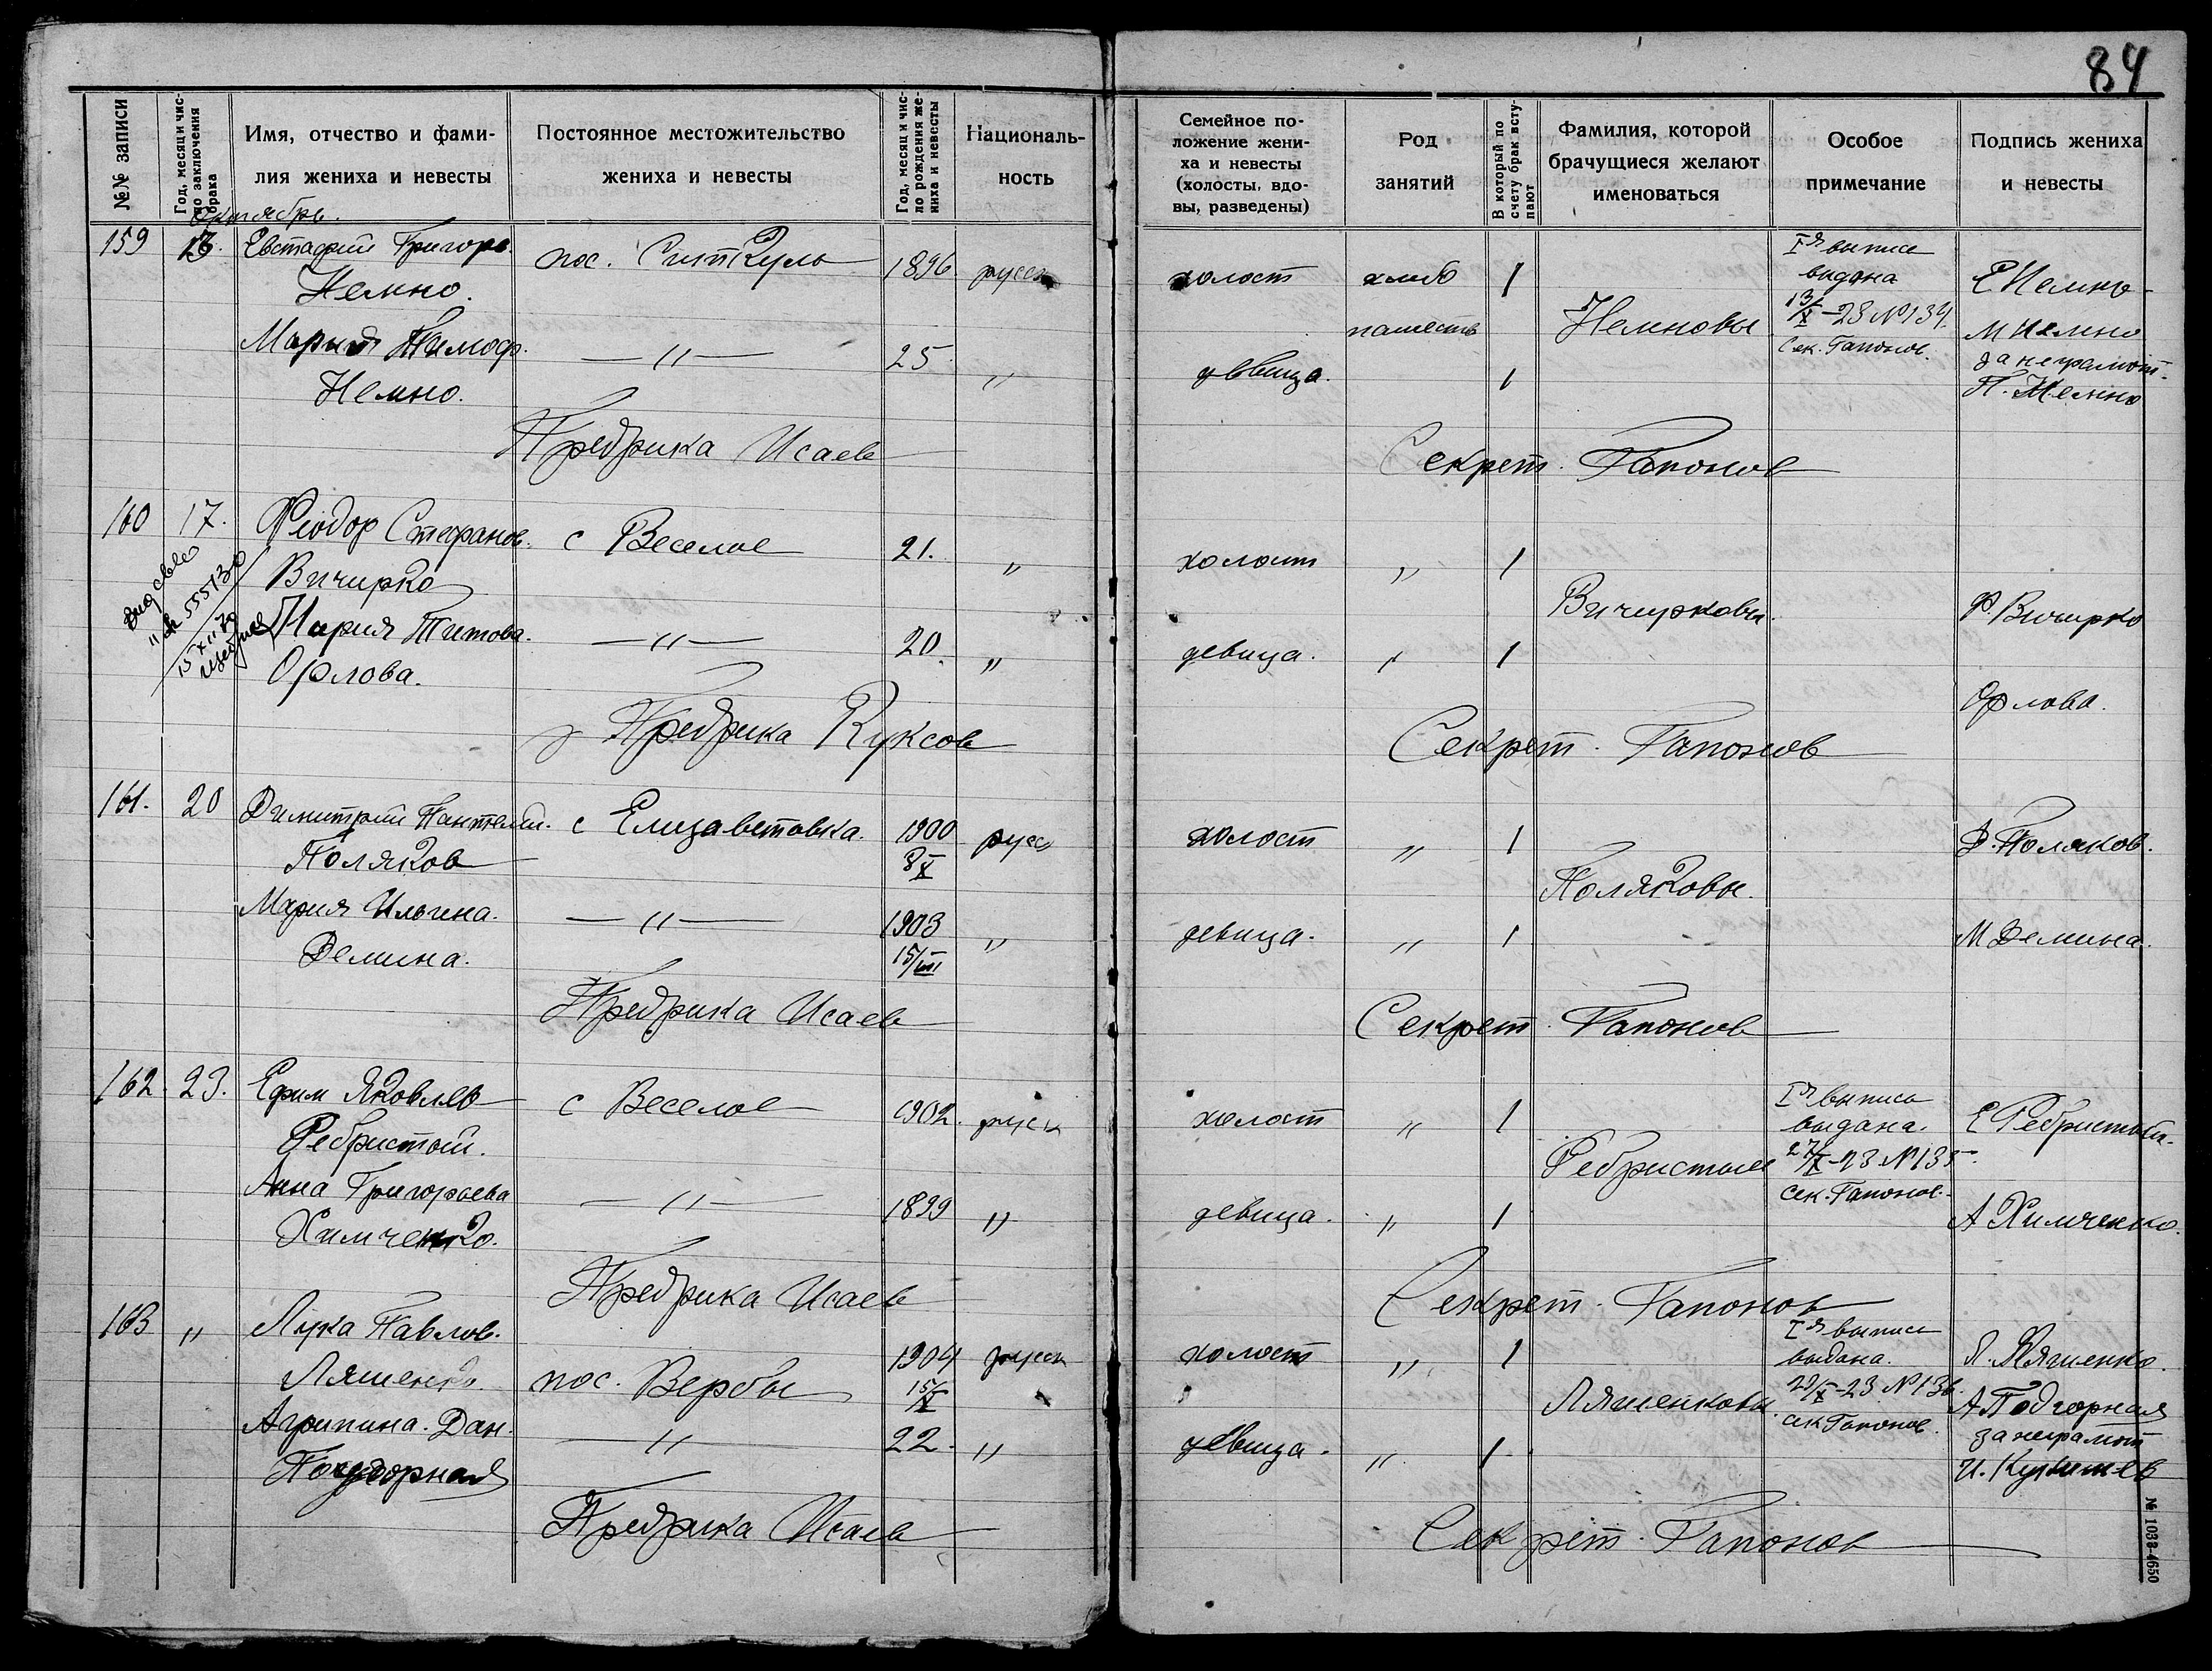 84
№№ записи
Год, месяц и чис-
ло заключения
брака
Имя, отчество и фами-
лия жениха и невесты
Постоянное местожительство
жениха и невесты
Год, месяц и чис-
ло рождения же-
ниха и невесты
Националь-
ность
Семейное по-
ложение жени-
ха и невесты
(холосты, вдо-
вы, разведены)
Род
занятий
В который по
счету брак всту-
пают
Фамилия, которой
брачущиеся желают
именоваться
Особое
примечание
Подпись жениха
и невесты
Октябрь.
159 13. Евстафий Григорь.
Немно.
пос. СитКуль 1896 русск
холост хлебо 1
пашеств
Немновы
Iя выпись
выдана
13/X-23 №134.
Сек. Гапонов.
Е Немно
Мария Тимоф.
Немно.
—„— 25 „
девица. 1
М Немно
за неграмот.
П. Немно
Предрика Исаев
Секрет. Гапонов
160 17. Феодор Стефанов.
Вичирко
с Веселое 21. „
холост „ 1
Вичирковы.
Ф. Вичирко
15 XII 70
Мария Титова.
Орлова.
—„— 20. „
девица. „ 1
Орлова.
Предрика Куксов
Секрет. Гапонов
161. 20 Димитрий Пантелей.
Поляков
с Елизаветовка. 1900
8/X
русс
холост „ 1
Поляковы.
Д. Поляков.
Мария Ильина.
Демина.
—„— 1903
15/VIII
„
девица. „ 1
М Демина.
Предрика Исаев
Секрет. Гапонов
162. 23. Ефим Яковлев
Ребристый.
с Веселое 1902. руск
холост „ 1
Ребристые
Iя выпись
выдана.
27/X-23 №135.
Сек. Гапонов.
Е Ребристый.
Анна Григорьева
Химченко.
—„— 1899 „
девица. „ 1
А Химченко.
Предрика Исаев
Секрет. Гапонов
163 „ Лука Павлов.
Ляшенко.
пос. Вербы 1904
15/X
русск
холост „ 1
Ляшенковы
Iя выпись
выдана.
29/X-23 №136.
Сек Гапонов.
Л. Ляшенко.
Агрипина. Дан.
Подгорная
—„— 22. „
девица. „ 1.
А Подгорная
за неграмот
Предрика Исаев
Секрет. Гапонов
№ 1033-4650